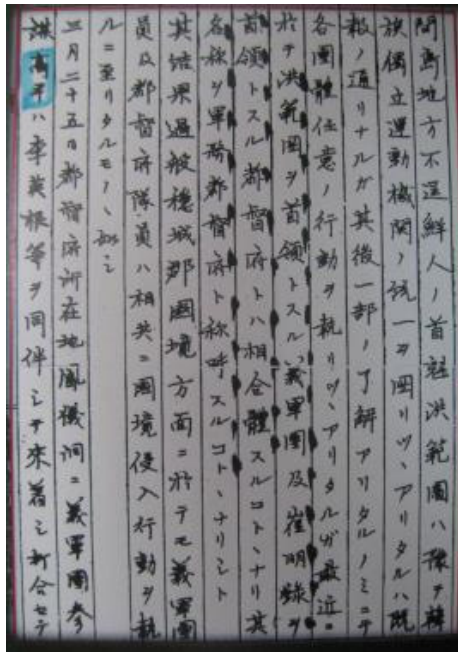 間島地方不逞鮮人ノ首魁洪範圖ハ豫テ韓
族獨立運動機関ノ統一ヲ圖リツヽアリタルハ既
報ノ通リナルガ其後一部ノ了解アリタルノミニテ
各團體任意ノ行動ヲ執リツヽアリタルガ最近ニ
於テ洪範圖ヲ首領トスル義軍團及崔明錄ヲ
首領トスル都督府トハ相合體スルコトヽナリ其
名称ヲ軍務都督府ト称呼スルコトヽナリシト
其結果過般穏城郡國境方面ニ於テモ義軍團
員及都督府隊員ハ相共ニ國境侵入行動ヲ執
ルニ至リタルモノヽ如シ
三月二十五日都督府所在地鳳儀洞ニ義軍團参
謀高平ハ李英根等ヲ同伴シテ来着シ打合セテ